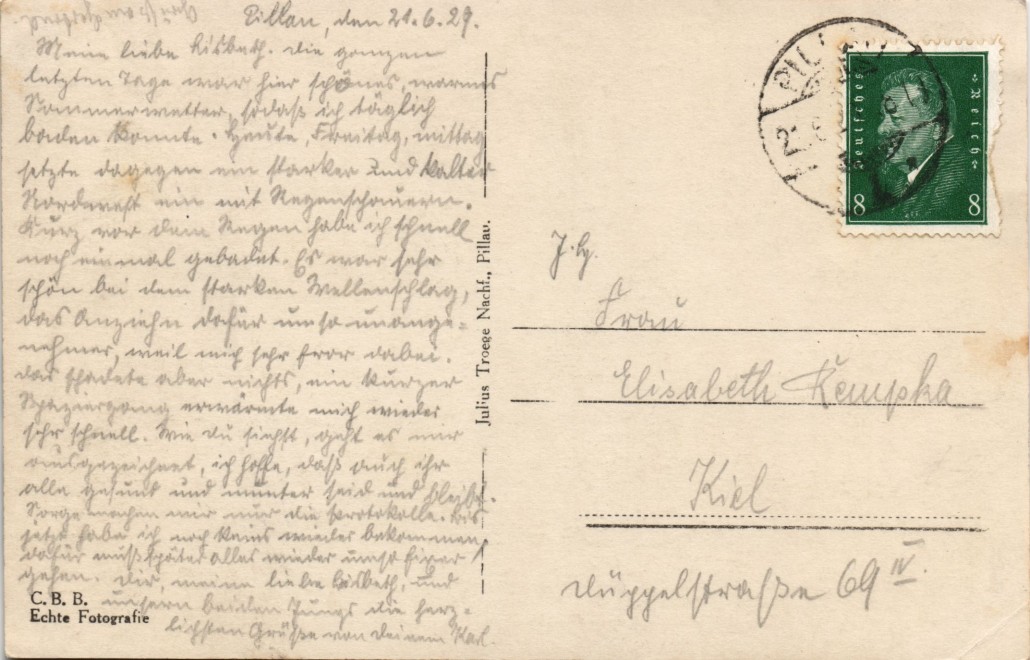 Pillau, den 21.6.29.
Meine liebe Lisbeth. Die ganzen
letzten Tage war hier schönes, warmes
Sommerwetter, sodaß ich täglich
baden konnte. Heute, Freitag, mittag
setzte dagegen ein starker und kalter
Nordwest ein mit Regenschauern.
Kurz vor dem Regen habe ich schnell
noch einmal gebadet. Es war sehr
schön bei dem starken Wellenschlag,
das Anziehn dafür umso unange-
nehmer, weil mich sehr fror dabei.
Das schadete aber nichts, ein kurzer
Spaziergang erwärmte mich wieder
sehr schnell. Wie Du siehst, geht es mir
ausgezeichnet, ich hoffe, daß auch ihr
alle gesund und munter seid und bleibt.
Sorge machen mir nur die Protokolle. Bis
jetzt habe ich noch keins wieder bekommen,
dafür muß später alles wieder umso
gehen. Dir, meine liebe Lisbeth, und
unsern beiden Jungs die herz-
lichsten Grüße von Deinem Karl.
C. B. B.
Echte Fotografie
Julius Troege Nachf., Pillau.
PILLAU
Deutsches Reich
8 8
Frau
Elisabeth Kempka
Kiel
Düppelstraße 69 IV.